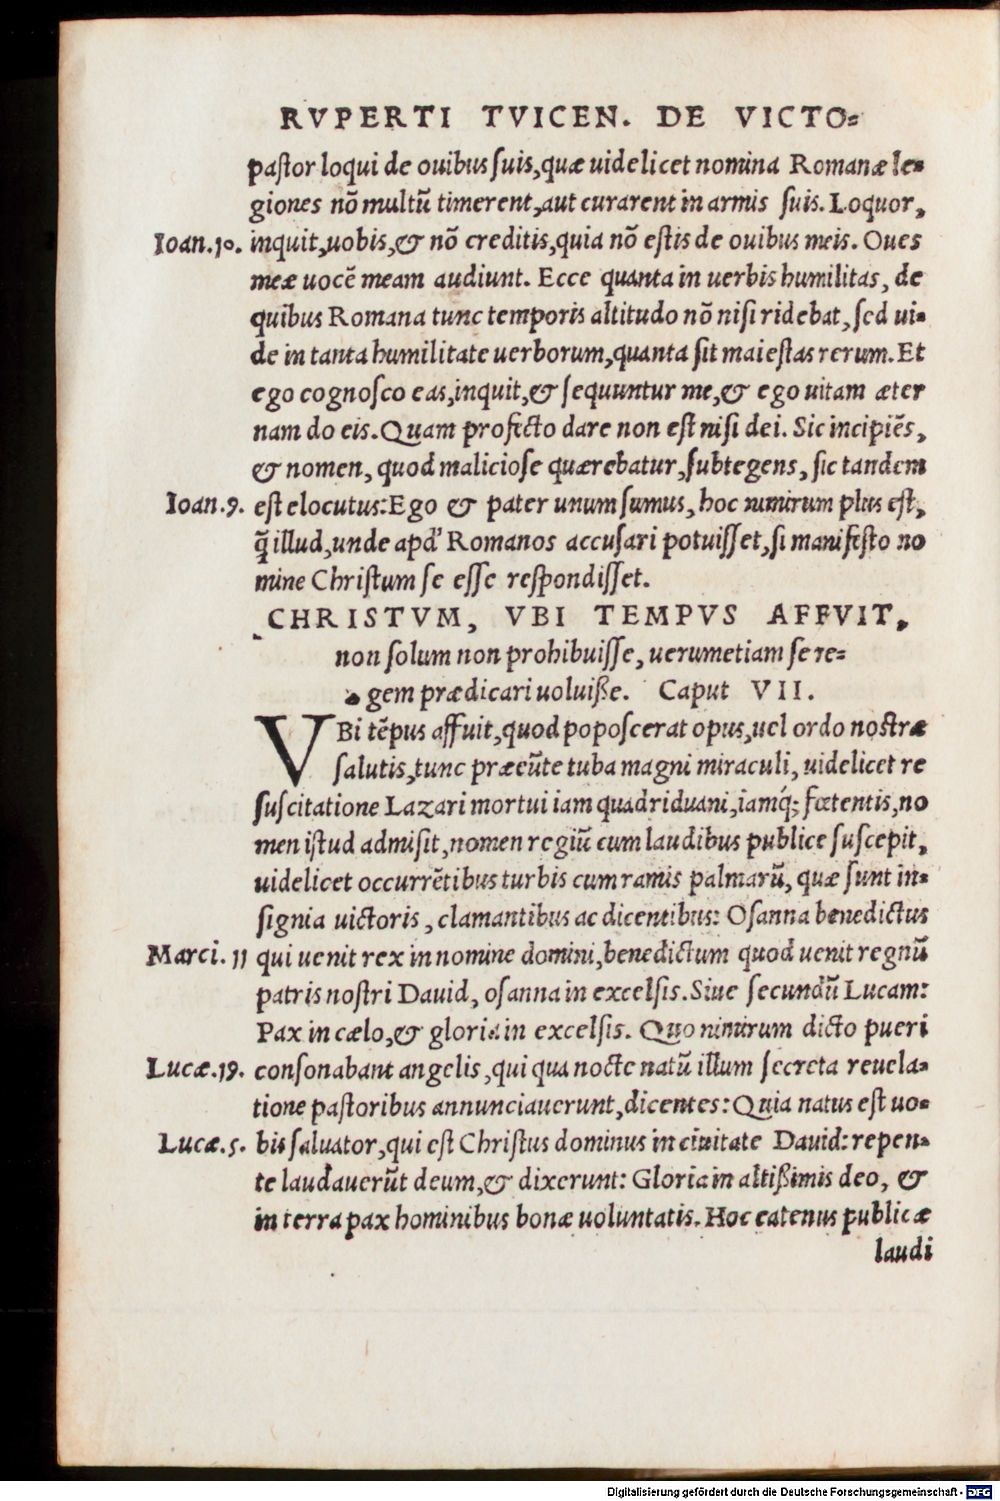 RVPERTI TVICEN. DE VICTO=
pastor loqui de ouibus suis,quæ uidelicet nomina Romanæ le=
giones nõ multũ timerent,aut curarent in armis suis. Loquor,
Ioan.10. inquit,uobis,& nõ creditis,quia nõ estis de ouibus meis. Oues
meæ uocẽ meam audiunt. Ecce quanta in uerbis humilitas, de
quibus Romana tunc temporis altitudo nõ nisi ridebat, sed ui=
de in tanta humilitate uerborum,quanta sit maiestas rerum. Et
ego cognosco eas,inquit,& sequuntur me,& ego uitam æter
nam do eis. Quam profecto dare non est nisi dei. Sic incipiẽs,
& nomen, quod maliciose quærebatur,subtegens, sic tandem
Ioan.9. est elocutus:Ego & pater unum sumus, hoc nimirum plus est,
q̃ illud,unde apd' Romanos accusari potuisset,si manifesto no
mine Christum se esse respondisset.
CHRISTVM, VBI TEMPVS AFFVIT,
non solum non prohibuisse, uerumetiam se re=
gem prædicari uoluiße. Caput VII.
VBi tẽpus affuit,quod poposcerat opus,uel ordo nostræ
salutis,tunc præeũte tuba magni miraculi, uidelicet re
suscitatione Lazari mortui iam quadriduani,iamq́; fœtentis,no
men istud admisit,nomen regiũ cum laudibus publice suscepit,
uidelicet occurrẽtibus turbis cum ramis palmarũ, quæ sunt in=
signia uictoris, clamantibus ac dicentibus: Osanna benedictus
Marci. 11 qui uenit rex in nomine domini,benedictum quod uenit regnũ
patris nostri Dauid, osanna in excelsis. Siue secundũ Lucam:
Pax in cælo,& gloria in excelsis. Quo nimirum dicto pueri
Lucæ.19. consonabant angelis,qui qua nocte natũ illum secreta reuela=
tione pastoribus annunciauerunt,dicentes: Quia natus est uo=
Lucæ.5. bis saluator,qui est Christus dominus in ciuitate Dauid: repen=
te laudauerũt deum,& dixerunt: Gloria in altißimis deo, &
in terra pax hominibus bonæ uoluntatis. Hoc eatenus publicæ
laudi
Digitalisierung gefördert durch die Deutsche Forschungsgemeinschaft - DFG